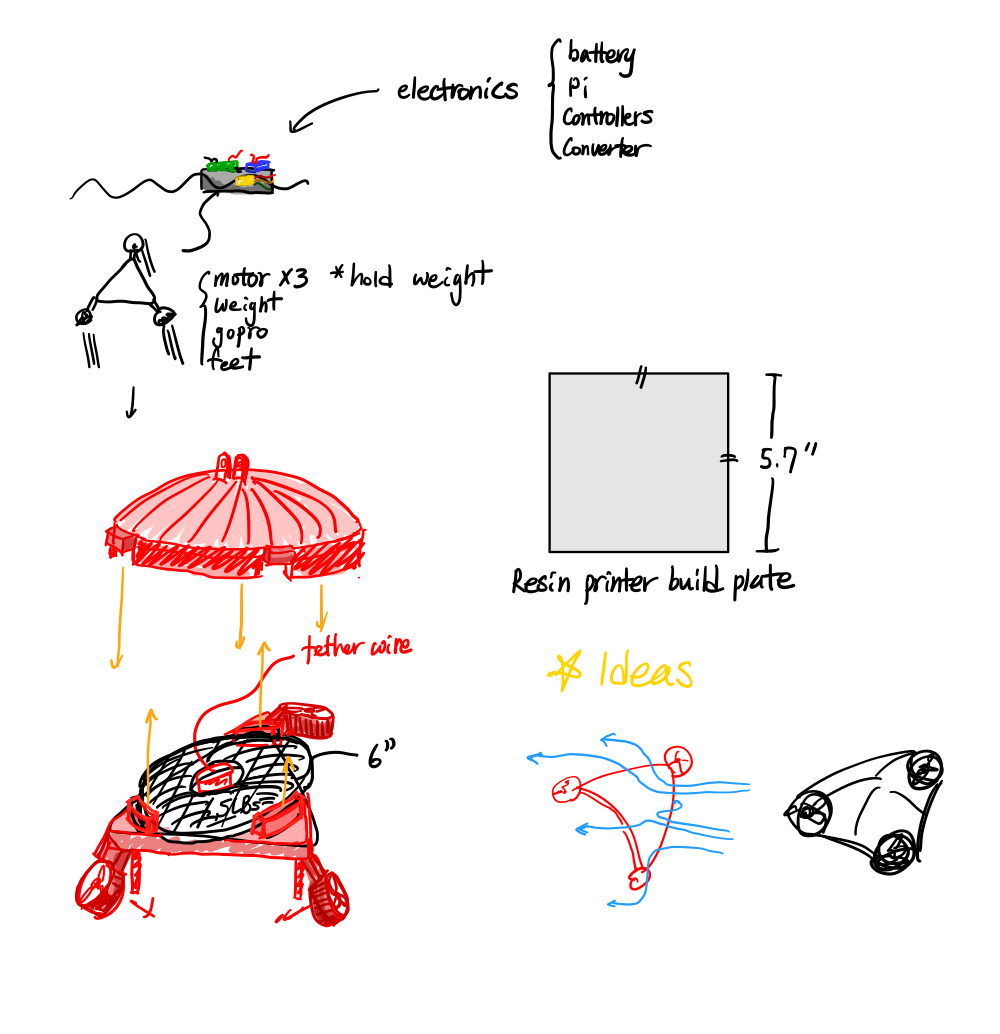 electronics
battery
Pi
Controllers
Converter
motor x3 *hold weight
weight
gopro
feet
5.7"
Resin printer build plate
tether wire
6"
Ideas